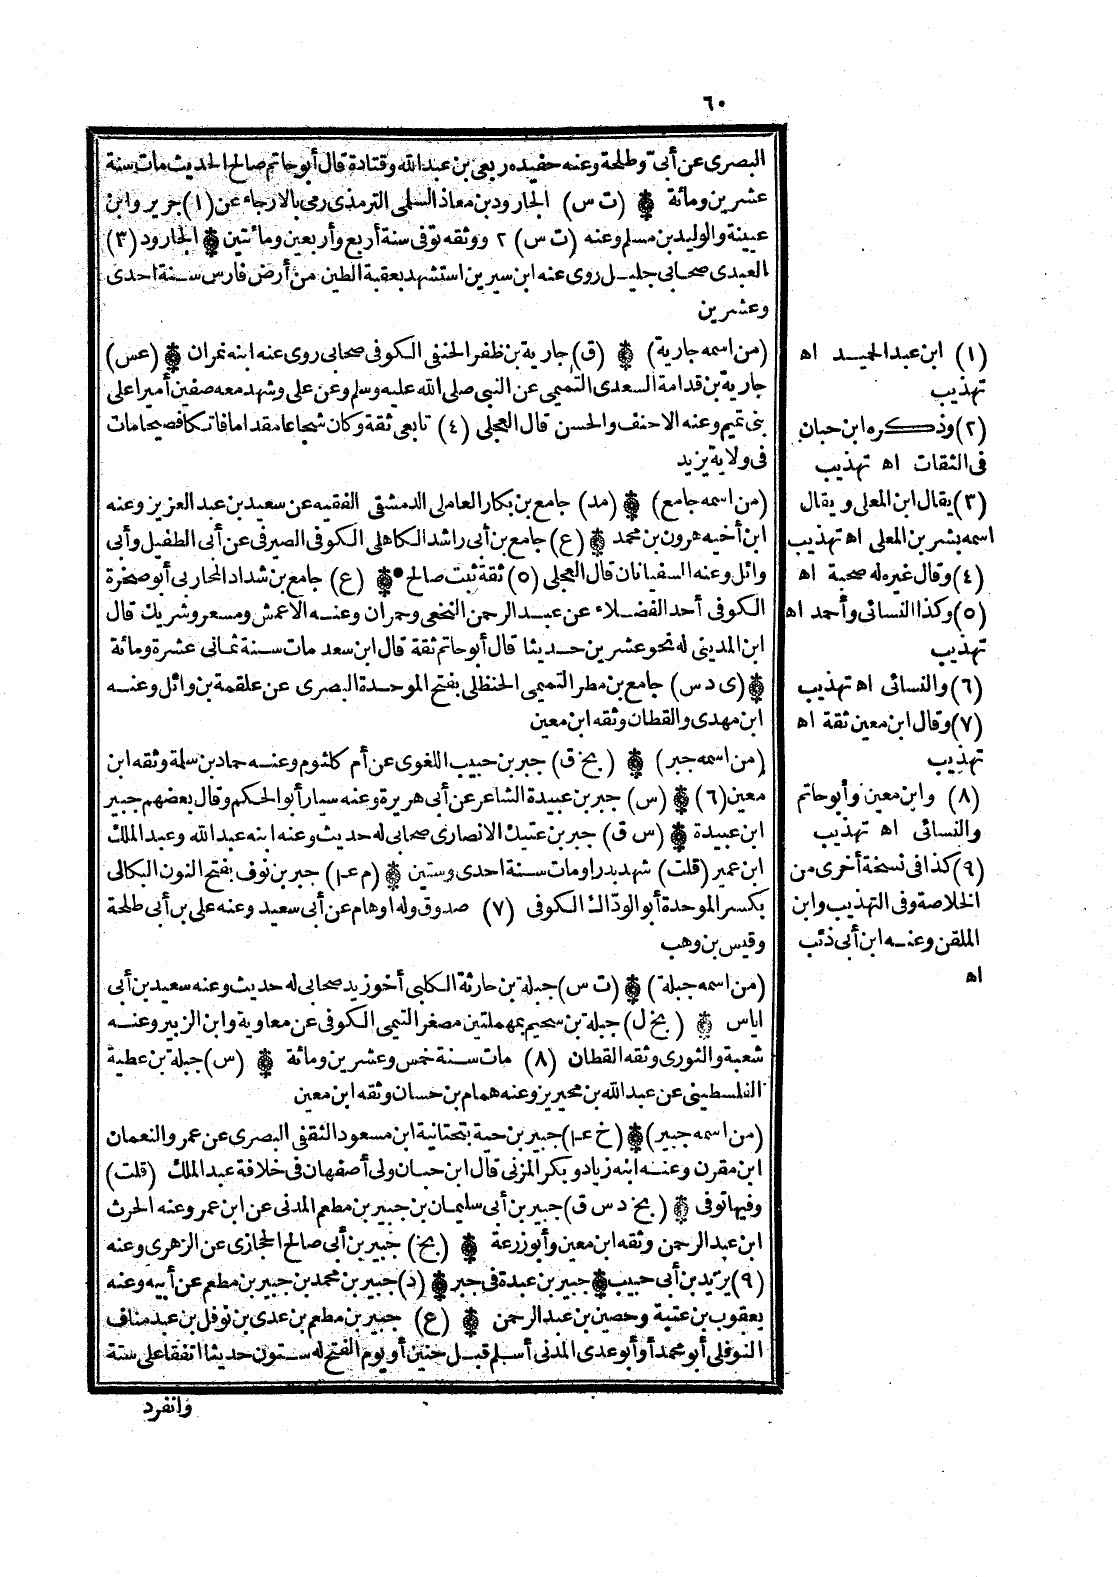 ٦٠
البصرى عن أبىّ وطلحة وعنه حفيده ربعى بن عبدالله وقتادة قال أبو حاتم صالح الحديث مات سنة
عشرين ومائة ۞ (ت س) الجارود بن معاذ السلمى الترمذى رمى بالارجاء عن (١) جرير وابن
عيينة والوليد بن مسلم وعنه (ت س) ٢ ووثقه توفى سنة أربع وأربعين ومائتين ۞ الجارود (٣)
العبدى صحابى جليل روى عنه ابن سيرين استشهد بعقبة الطين من أرض فارس سنة احدى
وعشرين
(من اسمه جارية) ۞ (ق) جارية بن ظفر الحنفى الكوفى صحابى روى عنه ابنه نمران ۞ (عس)
جارية بن قدامة السعدى التميمى عن النبى صلى الله عليه وسلم وعن على وشهد معه صفين أميرا على
بنى تميم وعنه الاحنف والحسن قال العجلى (٤) تابعى ثقة وكان شجاعا مقداما فاتكا فصيحا مات
فى ولاية يزيد
(من اسمه جامع) ۞ (مد) جامع بن بكار العاملى الدمشقى الفقيه عن سعيد بن عبد العزيز وعنه
ابن أخيه هرون بن محمد ۞ (ع) جامع بن أبى راشد الكاهلى الكوفى الصيرفى عن أبى الطفيل وأبى
وائل وعنه السفيانان قال العجلى (٥) ثقة ثبت صالح ۞ (ع) جامع بن شداد المحاربى أبو صخرة
الكوفى أحد الفضلاء عن عبد الرحمن النخعى وحمران وعنه الاعمش ومسعر وشريك قال
ابن المدينى له نحو عشرين حديثا قال أبو حاتم ثقة قال ابن سعد مات سنة ثمانى عشرة ومائة
۞ (ى د س) جامع بن مطر التميمى الحنظلى بفتح الموحدة البصرى عن علقمة بن وائل وعنه
ابن مهدى والقطان وثقه ابن معين
(من اسمه جبر) ۞ (بخ ق) جبر بن حبيب اللغوى عن أم كلثوم وعنه حماد بن سلمة وثقه ابن
معين (٦) ۞ (س) جبر بن عبيدة الشاعر عن أبى هريرة وعنه سيار أبو الحكم وقال بعضهم جبير
ابن عبيدة ۞ (س ق) جبر بن عتيك الانصارى صحابى له حديث وعنه ابنه عبد الله وعبد الملك
ابن عمير (قلت) شهد بدرا ومات سنة احدى وستين ۞ (م عـا) جبر بن نوف بفتح النون البكالى
بكسر الموحدة أبو الودّاك الكوفى (٧) صدوق وله اوهام عن أبى سعيد وعنه على بن أبى طلحة
وقيس بن وهب
(من اسمه جبلة) ۞ (ت س) جبلة بن حارثة الكلبى أخو زيد صحابى له حديث وعنه سعيد بن أبى
اياس ۞ (بخ ل) جبلة بن سحيم بمهملتين مصغر التيمى الكوفى عن معاوية وابن الزبير وعنه
شعبة والثورى وثقه القطان (٨) مات سنة خمس وعشرين ومائة ۞ (س) جبلة بن عطية
الفلسطينى عن عبدالله بن محيريز وعنه همام بن حسان وثقه ابن معين
(من اسمه جبير) ۞ (خ عـا) جبير بن حية بتحتانية ابن مسعود الثقفى البصرى عن عمر والنعمان
ابن مقرن وعنه ابنه زياد وبكر المزنى قال ابن حبان ولى أصفهان فى خلافة عبد الملك (قلت)
وفيها توفى ۞ (بخ د س ق) جبير بن أبى سليمان بن جبير بن مطعم المدنى عن ابن عمر وعنه الحرث
ابن عبد الرحمن وثقه ابن معين وأبو زرعة ۞ (بخ) جبير بن أبى صالح الحجازى عن الزهرى وعنه
(٩) يزيد بن أبى حبيب ۞ جبير بن عبدة فى جبر ۞ (د) جبير بن محمد بن جبير بن مطعم عن أبيه وعنه
يعقوب بن عتبة وحصين بن عبد الرحمن ۞ (ع) جبير بن مطعم بن عدى بن نوفل بن عبد مناف
النوفلى أبو محمد أو أبو عدى المدنى أسلم قبل حنين أو يوم الفتح له ستون حديثا اتفقا على ستة
وانفرد
(١) ابن عبد الحميد اهـ
تهذيب
(٢) وذكره ابن حبان
فى الثقات اهـ تهذيب
(٣) يقال ابن المعلى ويقال
اسمه بشر بن المعلى اهـ تهذيب
(٤) وقال غيره له صحبة اهـ
(٥) وكذا النسائى وأحمد اهـ
تهذيب
(٦) والنسائى اهـ تهذيب
(٧) وقال ابن معين ثقة اهـ
تهذيب
(٨) وابن معين وأبو حاتم
والنسائى اهـ تهذيب
(٩) كذا فى نسخة أخرى من
الخلاصة وفى التهذيب وابن
الملقن وعنه ابن أبى ذئب
اهـ